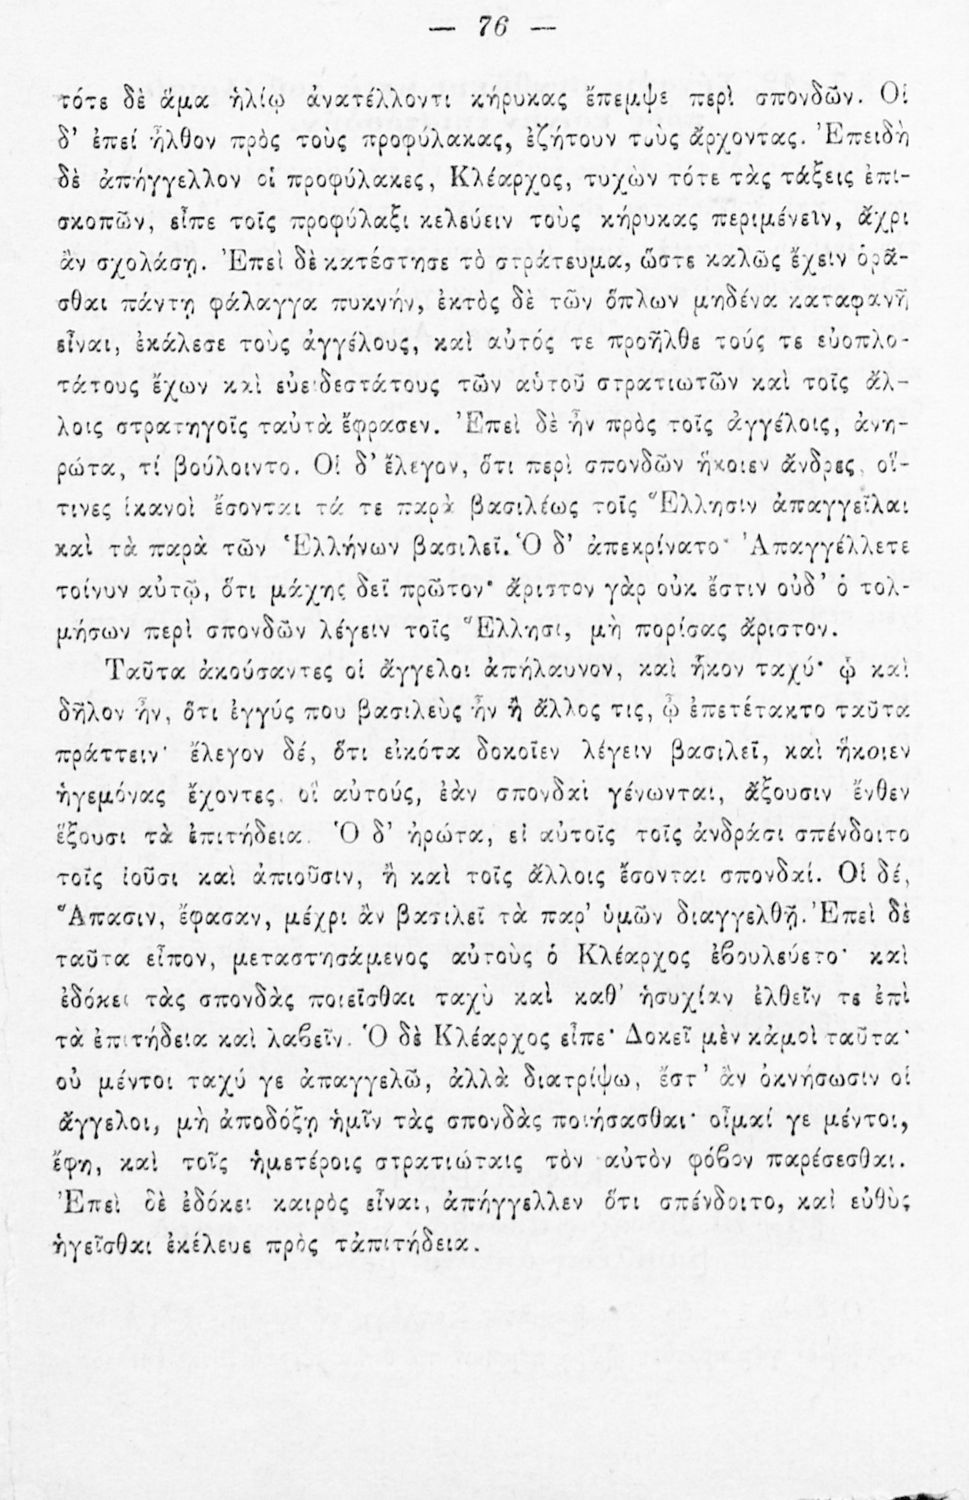 — 76 —
τότε δὲ ἅμα ἡλίῳ ἀνατέλλοντι κήρυκας ἔπεμψε περὶ σπονδῶν. Οἱ
δ’ ἐπεί ἦλθον πρὸς τοὺς προφύλακας, ἐζήτουν τοὺς ἄρχοντας. Ἐπειδὴ
δὲ ἀπήγγελλον οἱ προφύλακες, Κλέαρχος, τυχὼν τότε τὰς τάξεις ἐπι-
σκοπῶν, εἶπε τοῖς προφύλαξι κελεύειν τοὺς κήρυκας περιμένειν, ἄχρι
ἂν σχολάσῃ. Ἐπεὶ δὲ κατέστησε τὸ στράτευμα, ὥστε καλῶς ἔχειν ὁρᾶ-
σθαι πάντῃ φάλαγγα πυκνήν, ἐκτὸς δὲ τῶν ὅπλων μηδένα καταφανῆ
εἶναι, ἐκάλεσε τοὺς ἀγγέλους, καὶ αὐτός τε προῆλθε τούς τε εὐοπλο-
τάτους ἔχων καὶ εὐειδεστάτους τῶν αὑτοῦ στρατιωτῶν καὶ τοῖς ἄλ-
λοις στρατηγοῖς ταὐτὰ ἔφρασεν. Ἐπεὶ δὲ ἦν πρὸς τοῖς ἀγγέλοις, ἀνη-
ρώτα, τί βούλοιντο. Οἱ δ’ ἔλεγον, ὅτι περὶ σπονδῶν ἥκοιεν ἄνδρες, οἵ-
τινες ἱκανοὶ ἔσονται τά τε παρὰ βασιλέως τοῖς Ἕλλησιν ἀπαγγεῖλαι
καὶ τὰ παρὰ τῶν Ἑλλήνων βασιλεῖ. Ὁ δ’ ἀπεκρίνατο· Ἀπαγγέλλετε
τοίνυν αὐτῷ, ὅτι μάχης δεῖ πρῶτον· ἄριστον γὰρ οὐκ ἔστιν οὐδ’ ὁ τολ-
μήσων περὶ σπονδῶν λέγειν τοῖς Ἕλλησι, μὴ πορίσας ἄριστον.
Ταῦτα ἀκούσαντες οἱ ἄγγελοι ἀπήλαυνον, καὶ ἧκον ταχύ· ᾧ καὶ
δῆλον ἦν, ὅτι ἐγγύς που βασιλεὺς ἦν ἢ ἄλλος τις, ᾧ ἐπετέτακτο ταῦτα
πράττειν· ἔλεγον δέ, ὅτι εἰκότα δοκοῖεν λέγειν βασιλεῖ, καὶ ἥκοιεν
ἡγεμόνας ἔχοντες, οἳ αὐτούς, ἐὰν σπονδαὶ γένωνται, ἄξουσιν ἔνθεν
ἕξουσι τὰ ἐπιτήδεια. Ὁ δ’ ἠρώτα, εἰ αὐτοῖς τοῖς ἀνδράσι σπένδοιτο
τοῖς ἰοῦσι καὶ ἀπιοῦσιν, ἢ καὶ τοῖς ἄλλοις ἔσονται σπονδαί. Οἱ δέ,
Ἅπασιν, ἔφασαν, μέχρι ἂν βασιλεῖ τὰ παρ’ ὑμῶν διαγγελθῇ. Ἐπεὶ δὲ
ταῦτα εἶπον, μεταστησάμενος αὐτοὺς ὁ Κλέαρχος ἐβουλεύετο· καὶ
ἐδόκει τὰς σπονδὰς ποιεῖσθαι ταχὺ καὶ καθ’ ἡσυχίαν ἐλθεῖν τε ἐπὶ
τὰ ἐπιτήδεια καὶ λαβεῖν. Ὁ δὲ Κλέαρχος εἶπε· Δοκεῖ μὲν κἀμοὶ ταῦτα·
οὐ μέντοι ταχύ γε ἀπαγγελῶ, ἀλλὰ διατρίψω, ἔστ’ ἂν ὀκνήσωσιν οἱ
ἄγγελοι, μὴ ἀποδόξῃ ἡμῖν τὰς σπονδὰς ποιήσασθαι· οἶμαί γε μέντοι,
ἔφη, καὶ τοῖς ἡμετέροις στρατιώταις τὸν αὐτὸν φόβον παρέσεσθαι.
Ἐπεὶ δὲ ἐδόκει καιρὸς εἶναι, ἀπήγγελλεν ὅτι σπένδοιτο, καὶ εὐθὺς
ἡγεῖσθαι ἐκέλευε πρὸς τἀπιτήδεια.